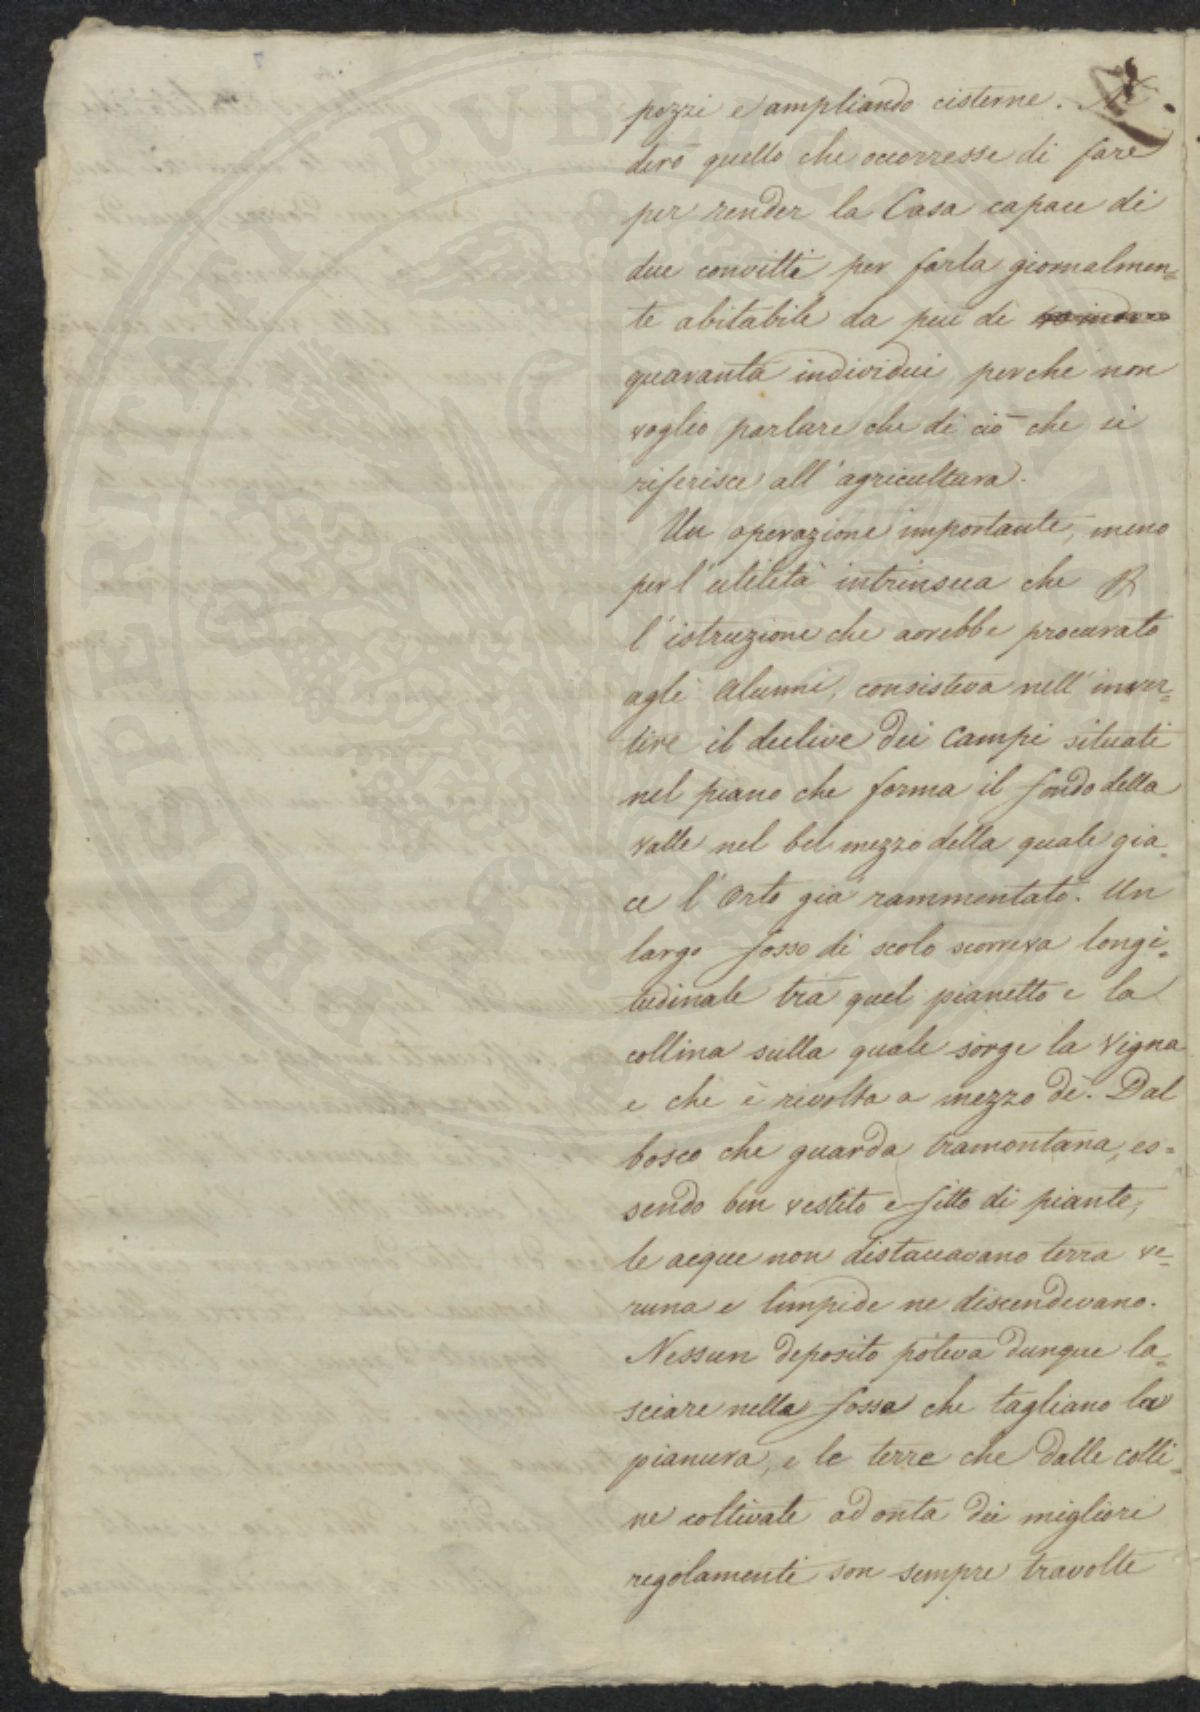 pozzi e ampliando cisterne. N
dirò quello che occorresse di fare
per render la Casa capace di
due convitti per farla giornalmen=
te abitabile da più di
quaranta individui, perché non
voglio parlare che di ciò che si
riferisce all'agricultura.
Un operazione importante, meno
per l'utilità intrinseca che P
l'istruzione che avrebbe procurato
agli Alunni, consisteva nell'inver=
tire il declive dei Campi situati
nel piano che forma il fondo della
valle nel bel mezzo della quale gia=
ce l'Orto già rammentato. Un
largo fosso di scolo scorreva longi=
tudinale tra quel pianetto e la
collina sulla quale sorge la Vigna
e che è rivolta a mezzo dì. Dal
bosco che guarda tramontana, es=
sendo ben vestito e fitto di piante,
le acque non distaccavano terra ve=
runa e limpide ne discendevano.
Nessun deposito poteva dunque la=
sciare nelle fosse che tagliano la
pianura, e le terre che dalle colli=
ne coltivate ad onta dei migliori
regolamenti son sempre travolte
PVBLICAE
PROSPERITATI